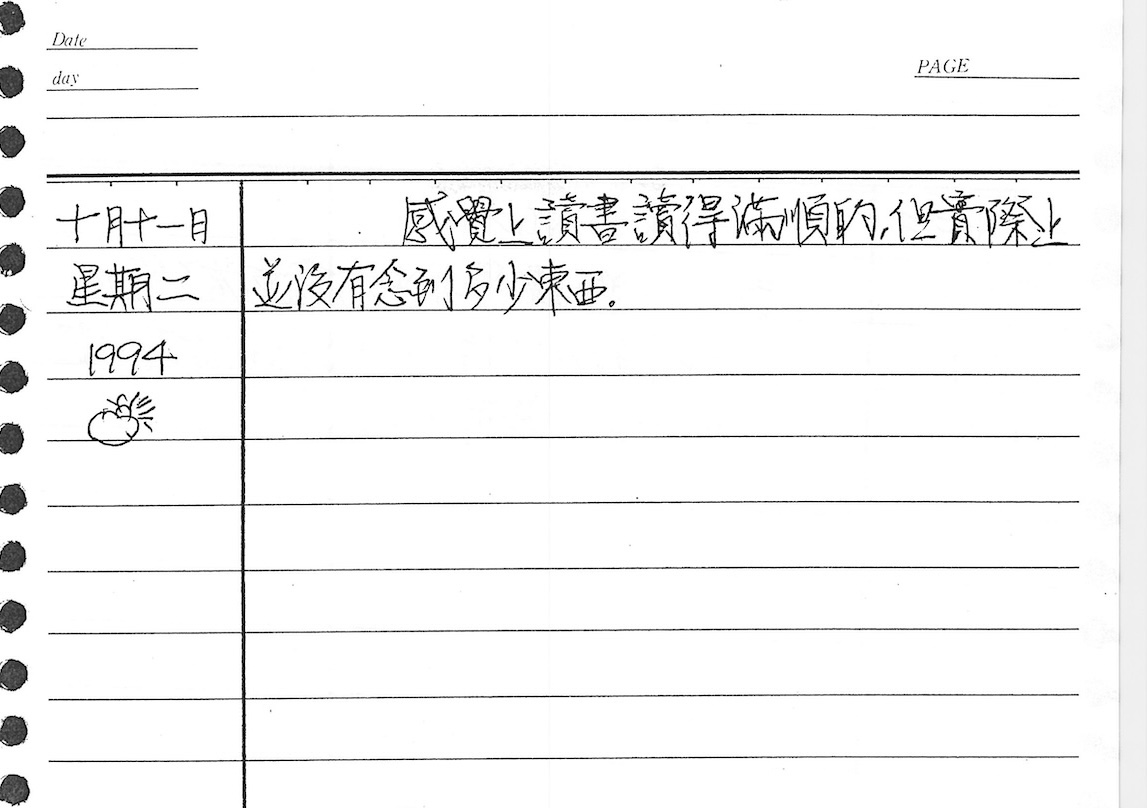 Date
day
PAGE
十月十一日
感覺上讀書讀得滿順的,但實際上
星期二
並沒有念到多少東西.
1994